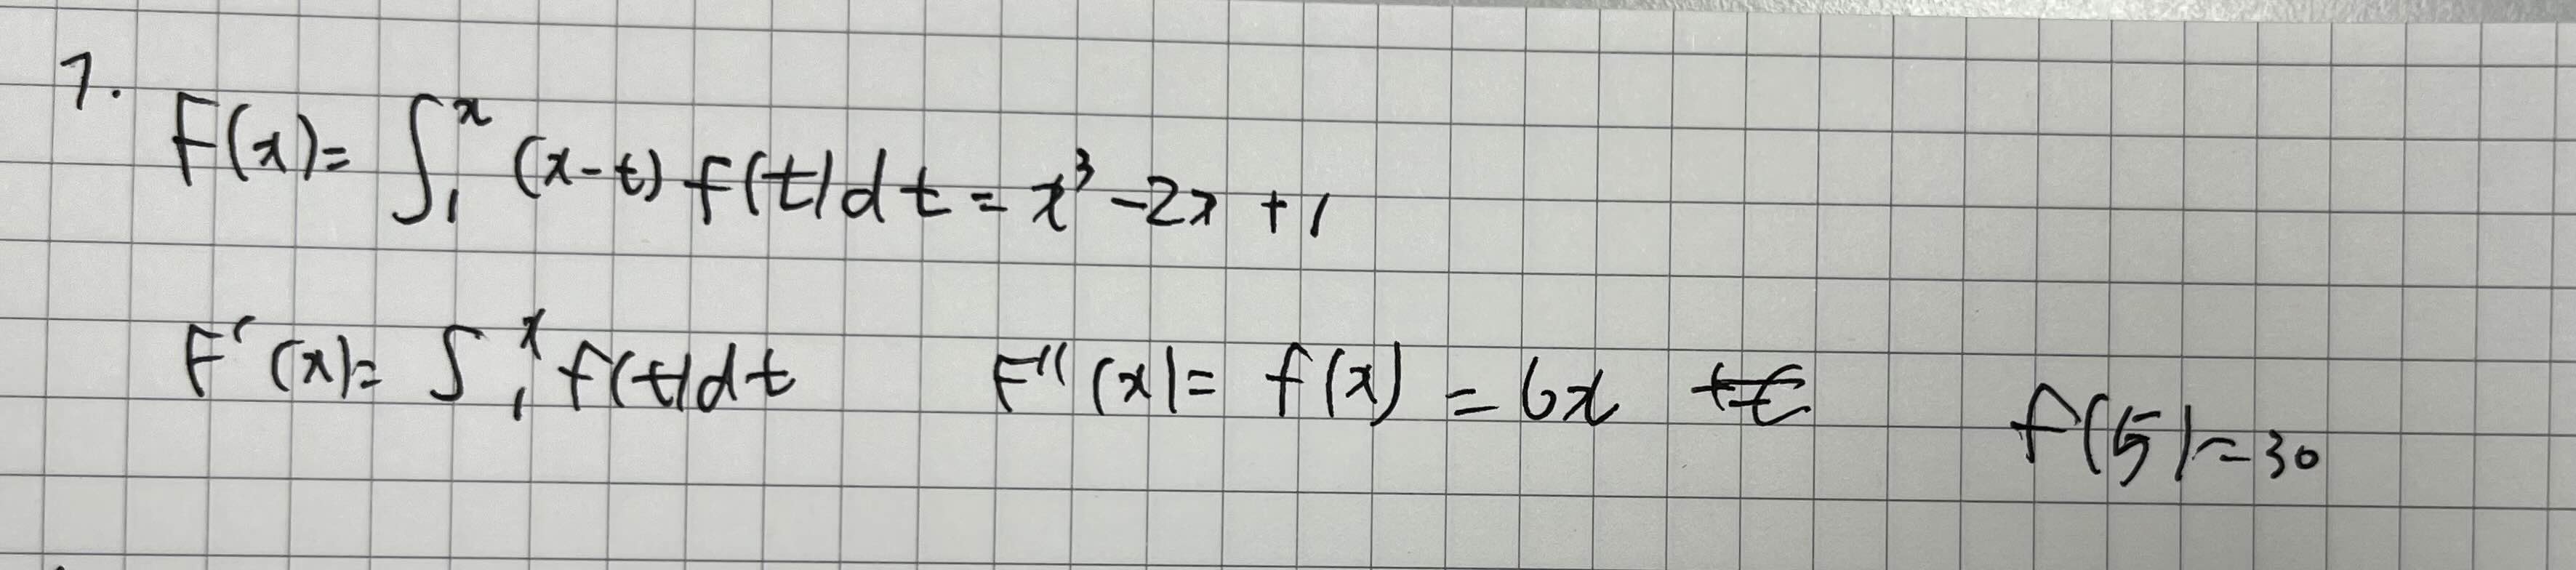 7.
F(x)= ∫₁ˣ (x-t) f(t)dt = x³ -2x +1
F'(x)= ∫₁ˣ f(t)dt F''(x)= f(x) = 6x f(5)=30